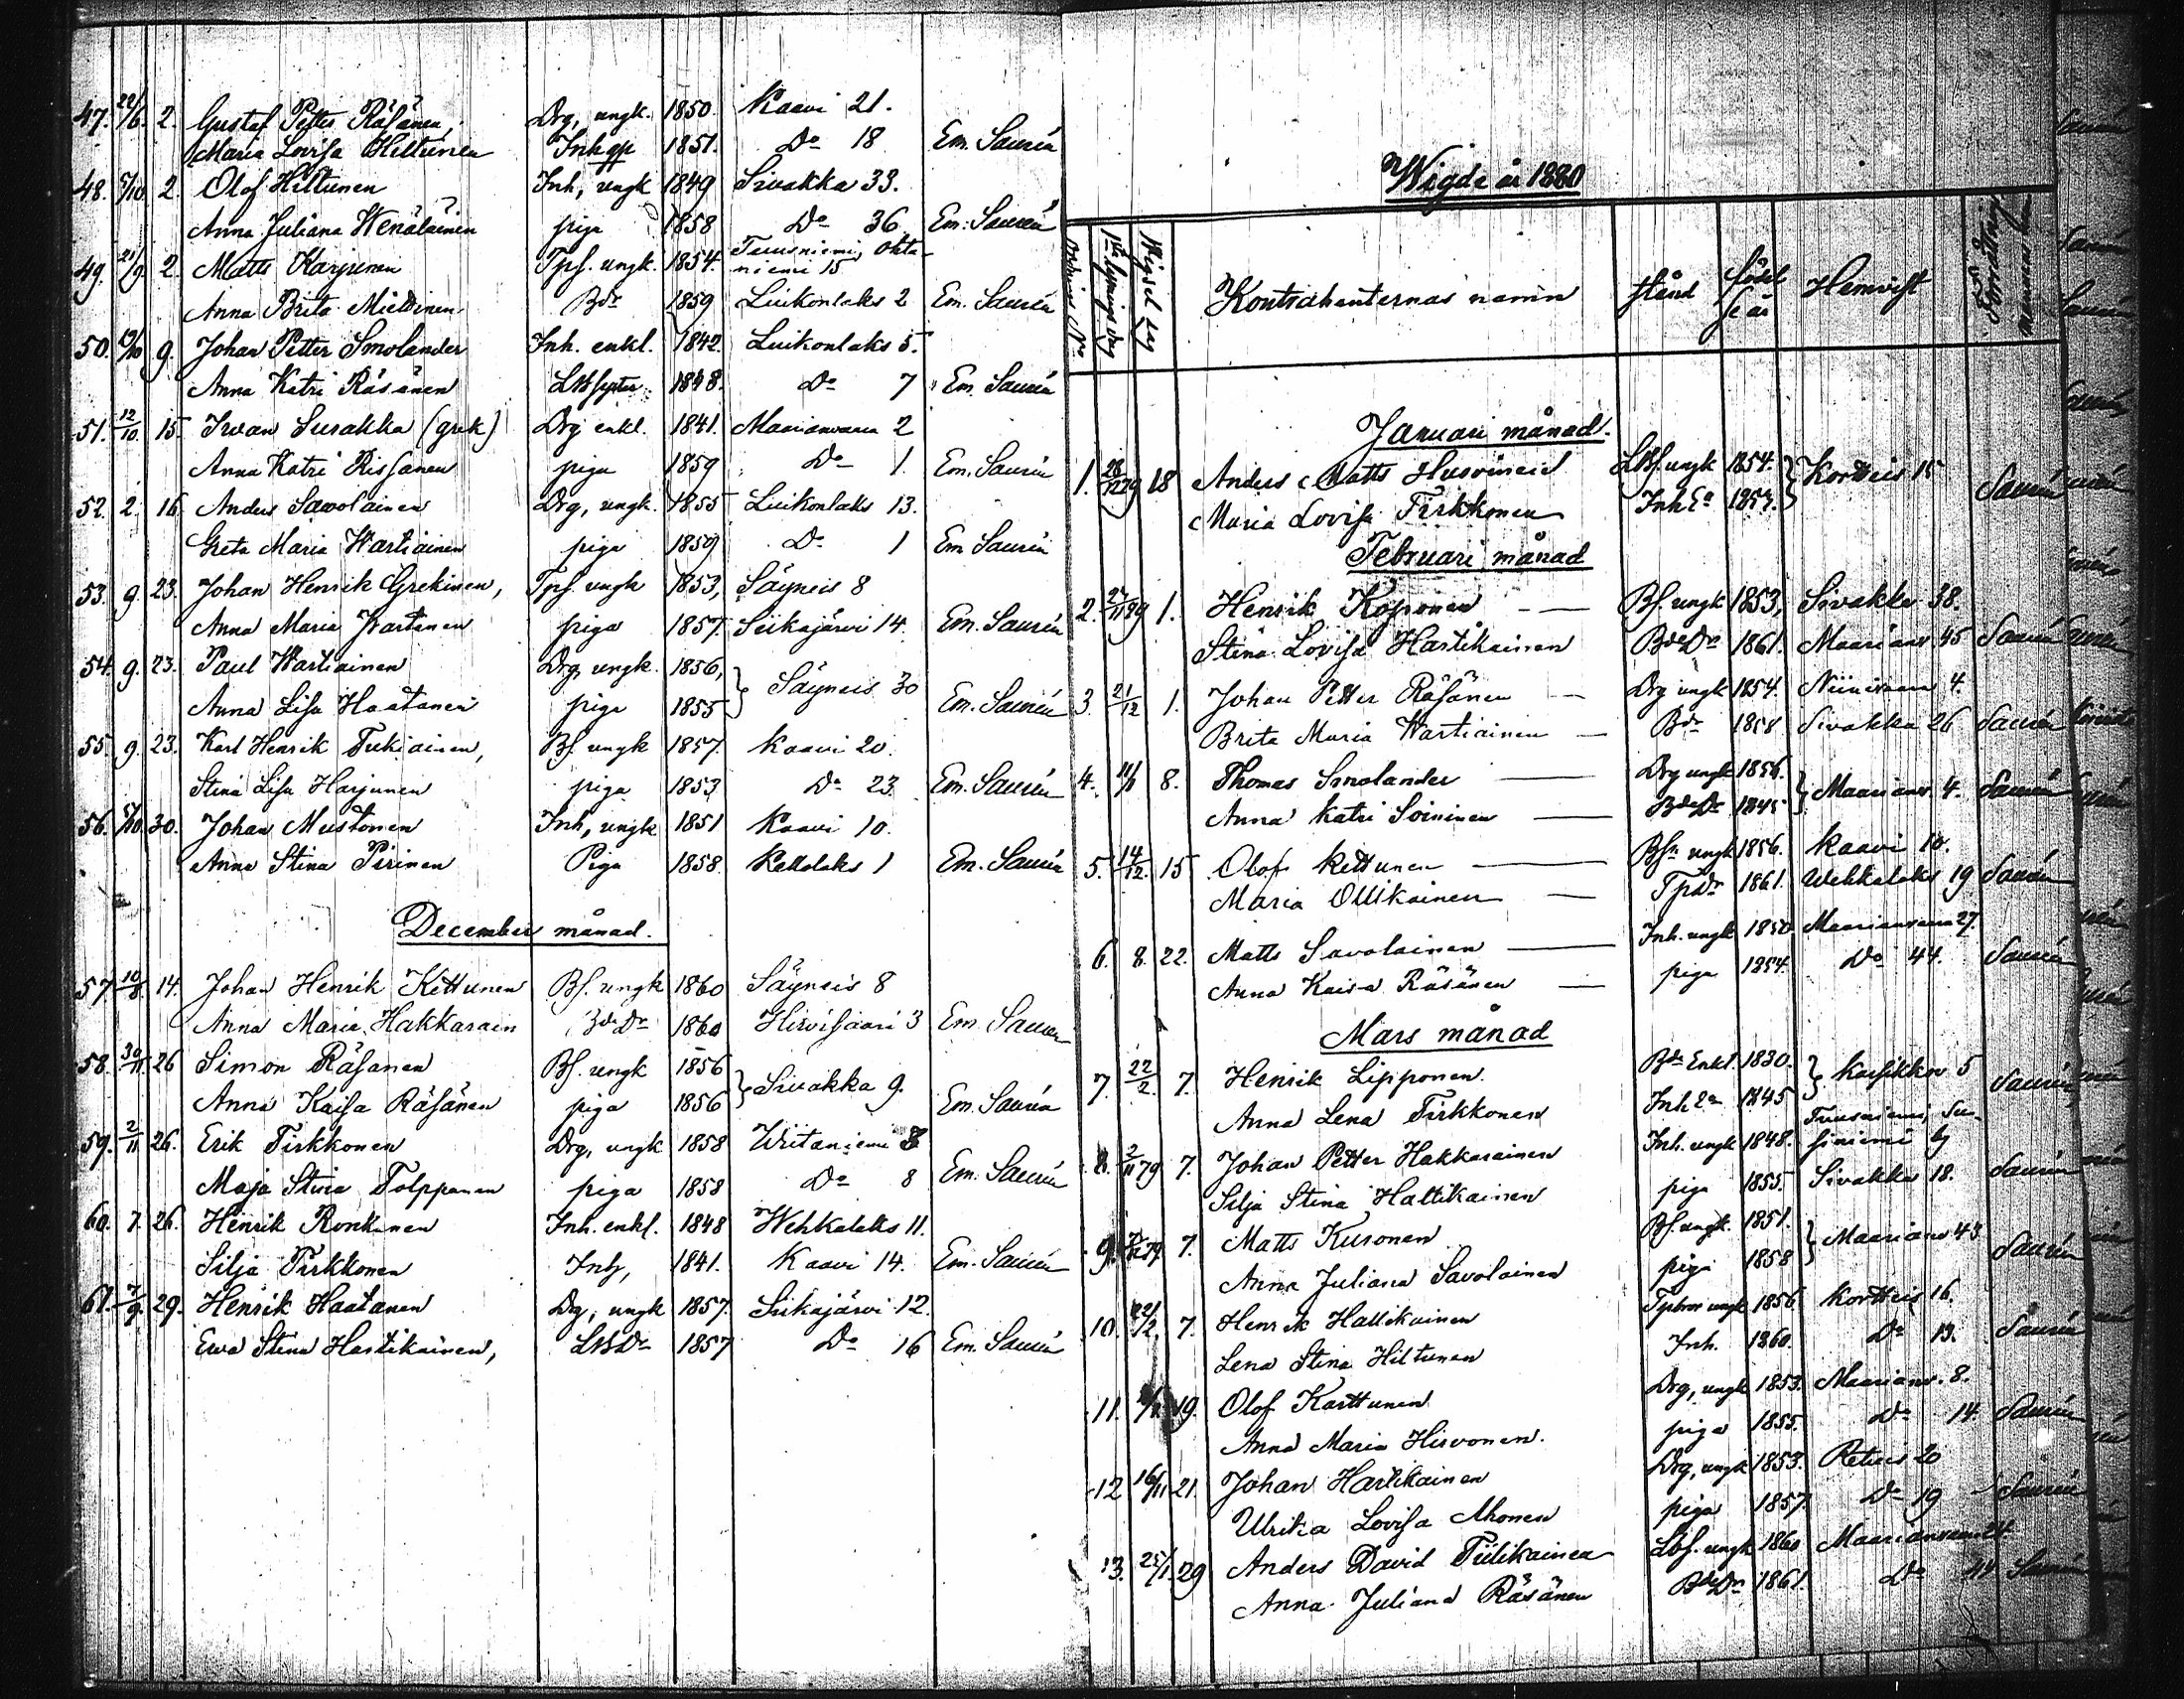 47. 22/6. 2. Gustaf Petter Räsänen, Drg, ungk. 1850. Kaavi 21.
Maria Lovisa Hiltunen Inh 1851. Do 18 Em. Saurén
48. 5/10. 2. Olof Hiltunen Inh, ungk 1849 Sivakka 33.
Anna Juliana Wenäläinen piga 1858 Do 36 Em. Saurén
49. 21/9. 2. Matts Karjunen Tpf. ungk. 1854. Tuusniemi, Ohta-
niemi 15
Anna Brita Miettinen Bdr 1859 Luikonlaks 2 Em. Saurén
50. 9. Johan Petter Smolander Inh. enkl. 1842. Luikonlaks 5.
Anna Katri Räsänen 1848. Do 7 Em. Saurén
51. 12/10. 15. Iwan Surakka (grek) Drg enkl. 1841. Maarianvaara 2
Anna Katri Rissanen piga 1859 Do 1. Em. Saurén
52. 2. 16. Anders Sawolainen Drg, ungk. 1855 Luikonlaks 13.
Greta Maria Wartiainen piga 1859 Do 1 Em Saurén
53. 9. 23. Johan Henrik Grekinen, Tpf. ungk 1853, Säyneis 8
Anna Maria Kartanen piga 1857. Siikajärvi 14. Em. Saurén
54. 9. 23. Paul Wartiainen Drg, ungk. 1856, Säyneis 30
Anna Lisa Haatanen piga 1855 Em. Saurén
55. 9. 23. Karl Henrik Tukiainen, Bf. ungk 1857. Kaavi 20.
Stina Lisa Harjunen piga 1853 Do 23. Em. Saurén
56. 5/10. 30. Johan Mustonen Inh, ungk 1851 Kaavi 10.
Anna Stina Pirinen Piga 1858. Kettolaks 1 Em. Saurén
December månad.
57. 10/8. 14. Johan Henrik Kettunen Bf. ungk 1860 Säyneis 8
Anna Maria Hakkarain BdeDr 1860 Hirvisaari 3 Em. Saurén
58. 30/11. 26 Simon Räsänen Bf. ungk 1856 Sivakka 9.
Anna Kaisa Räsänen piga 1856 Em. Saurén
59. 2/11 26. Erik Tirkkonen Drg, ungk 1858 Writaniemi 8
Maja Stina Tolppanen piga 1858 Do 8 Em. Saurén
60. 7. 26. Henrik Ronkanen Inh. enkl. 1848 Wehkalaks 11.
Silja Pirkkonen Inh, 1841. Kaavi 14. Em. Saurén
61. 7/9. 29. Henrik Haatanen Drg, ungk 1857. Siikajärvi 12.
Ewa Stina Hartikainen, LbDr 1857 Do 16 Em. Saurén
Wigde år 1880
Ordnings No 1sta lysnings dag Wigsel dag Kontrahenternas namn Stånd födel se år Hemvist Förrättningsmannens namn
Januari månad.
1. 28/12 79 18 Anders Matts Husvineid Lbf. ungk 1854. Kortteis 15
Maria Lovisa Tirkkonen Inh Ea 1857. Saurén
Februari månad
2. 27/11 89 1. Henrik Koponen Bf. ungk 1853, Sivakka 38.
Stina Lovisa Hartikainen BdeDr 1861. Maarianv 45 Saurén
3. 21/12 1. Johan Petter Räsänen Drg ungk 1854. Niinivaara 4.
Brita Maria Wartiainen Bdr 1858 Sivakka 26 Saurén
4. 11/1 8. Thomas Smolander Drg ungk 1856. Maarianv 4.
Anna Katri Soininen BdeDr 1845 Saurén
5. 14/12. 15 Olof Kettunen Bfn ungk 1856. Kaavi 10.
Maria Ollikainen TpDr 1861. Wehkalaks 19 Saurén
6. 8. 22. Matts Savolainen Inh. ungk 1850 Maarianvaara 27.
Anna Kaisa Räsänen piga 1854. Do 44. Saurén
Mars månad
7. 22/2. 7. Henrik Lipponen. Bde Enkl. 1830. 5
Anna Lena Tirkkonen Inh Ea 1845 Saurén
8. 2/11 79 7. Johan Petter Hakkarainen Inh. ungk 1848. Tuusniemi, Su-
siniemi by
Silja Stina Hallikainen piga 1855. Sivakka 18. Saurén
9. 7. Matts Kuronen Bf. ungk. 1851. Maarianv 43
Anna Juliana Savolainen piga 1858 Saurén
10. 22/2. 7. Henrik Hallikainen ungk 1856 Kortteis 16.
Lena Stina Hiltunen Inh. 1860. Do 13. Saurén
11. 19. Olof Karttunen Drg, ungk 1853. Maarianv. 8.
Anna Maria Hirvonen. piga 1855. Do 14. Saurén
12 16/11 21. Johan Hartikainen Drg, ungk 1853. Retuis 20
Ulrika Lovisa Ahonen piga 1857. Do 19 Saurén
13. 25/1. 29 Anders David Tiilikainen Lbf. ungk 1860 Maarianvaara 24.
Anna Juliana Räsänen BdeDr 1861. Do 44 Saurén